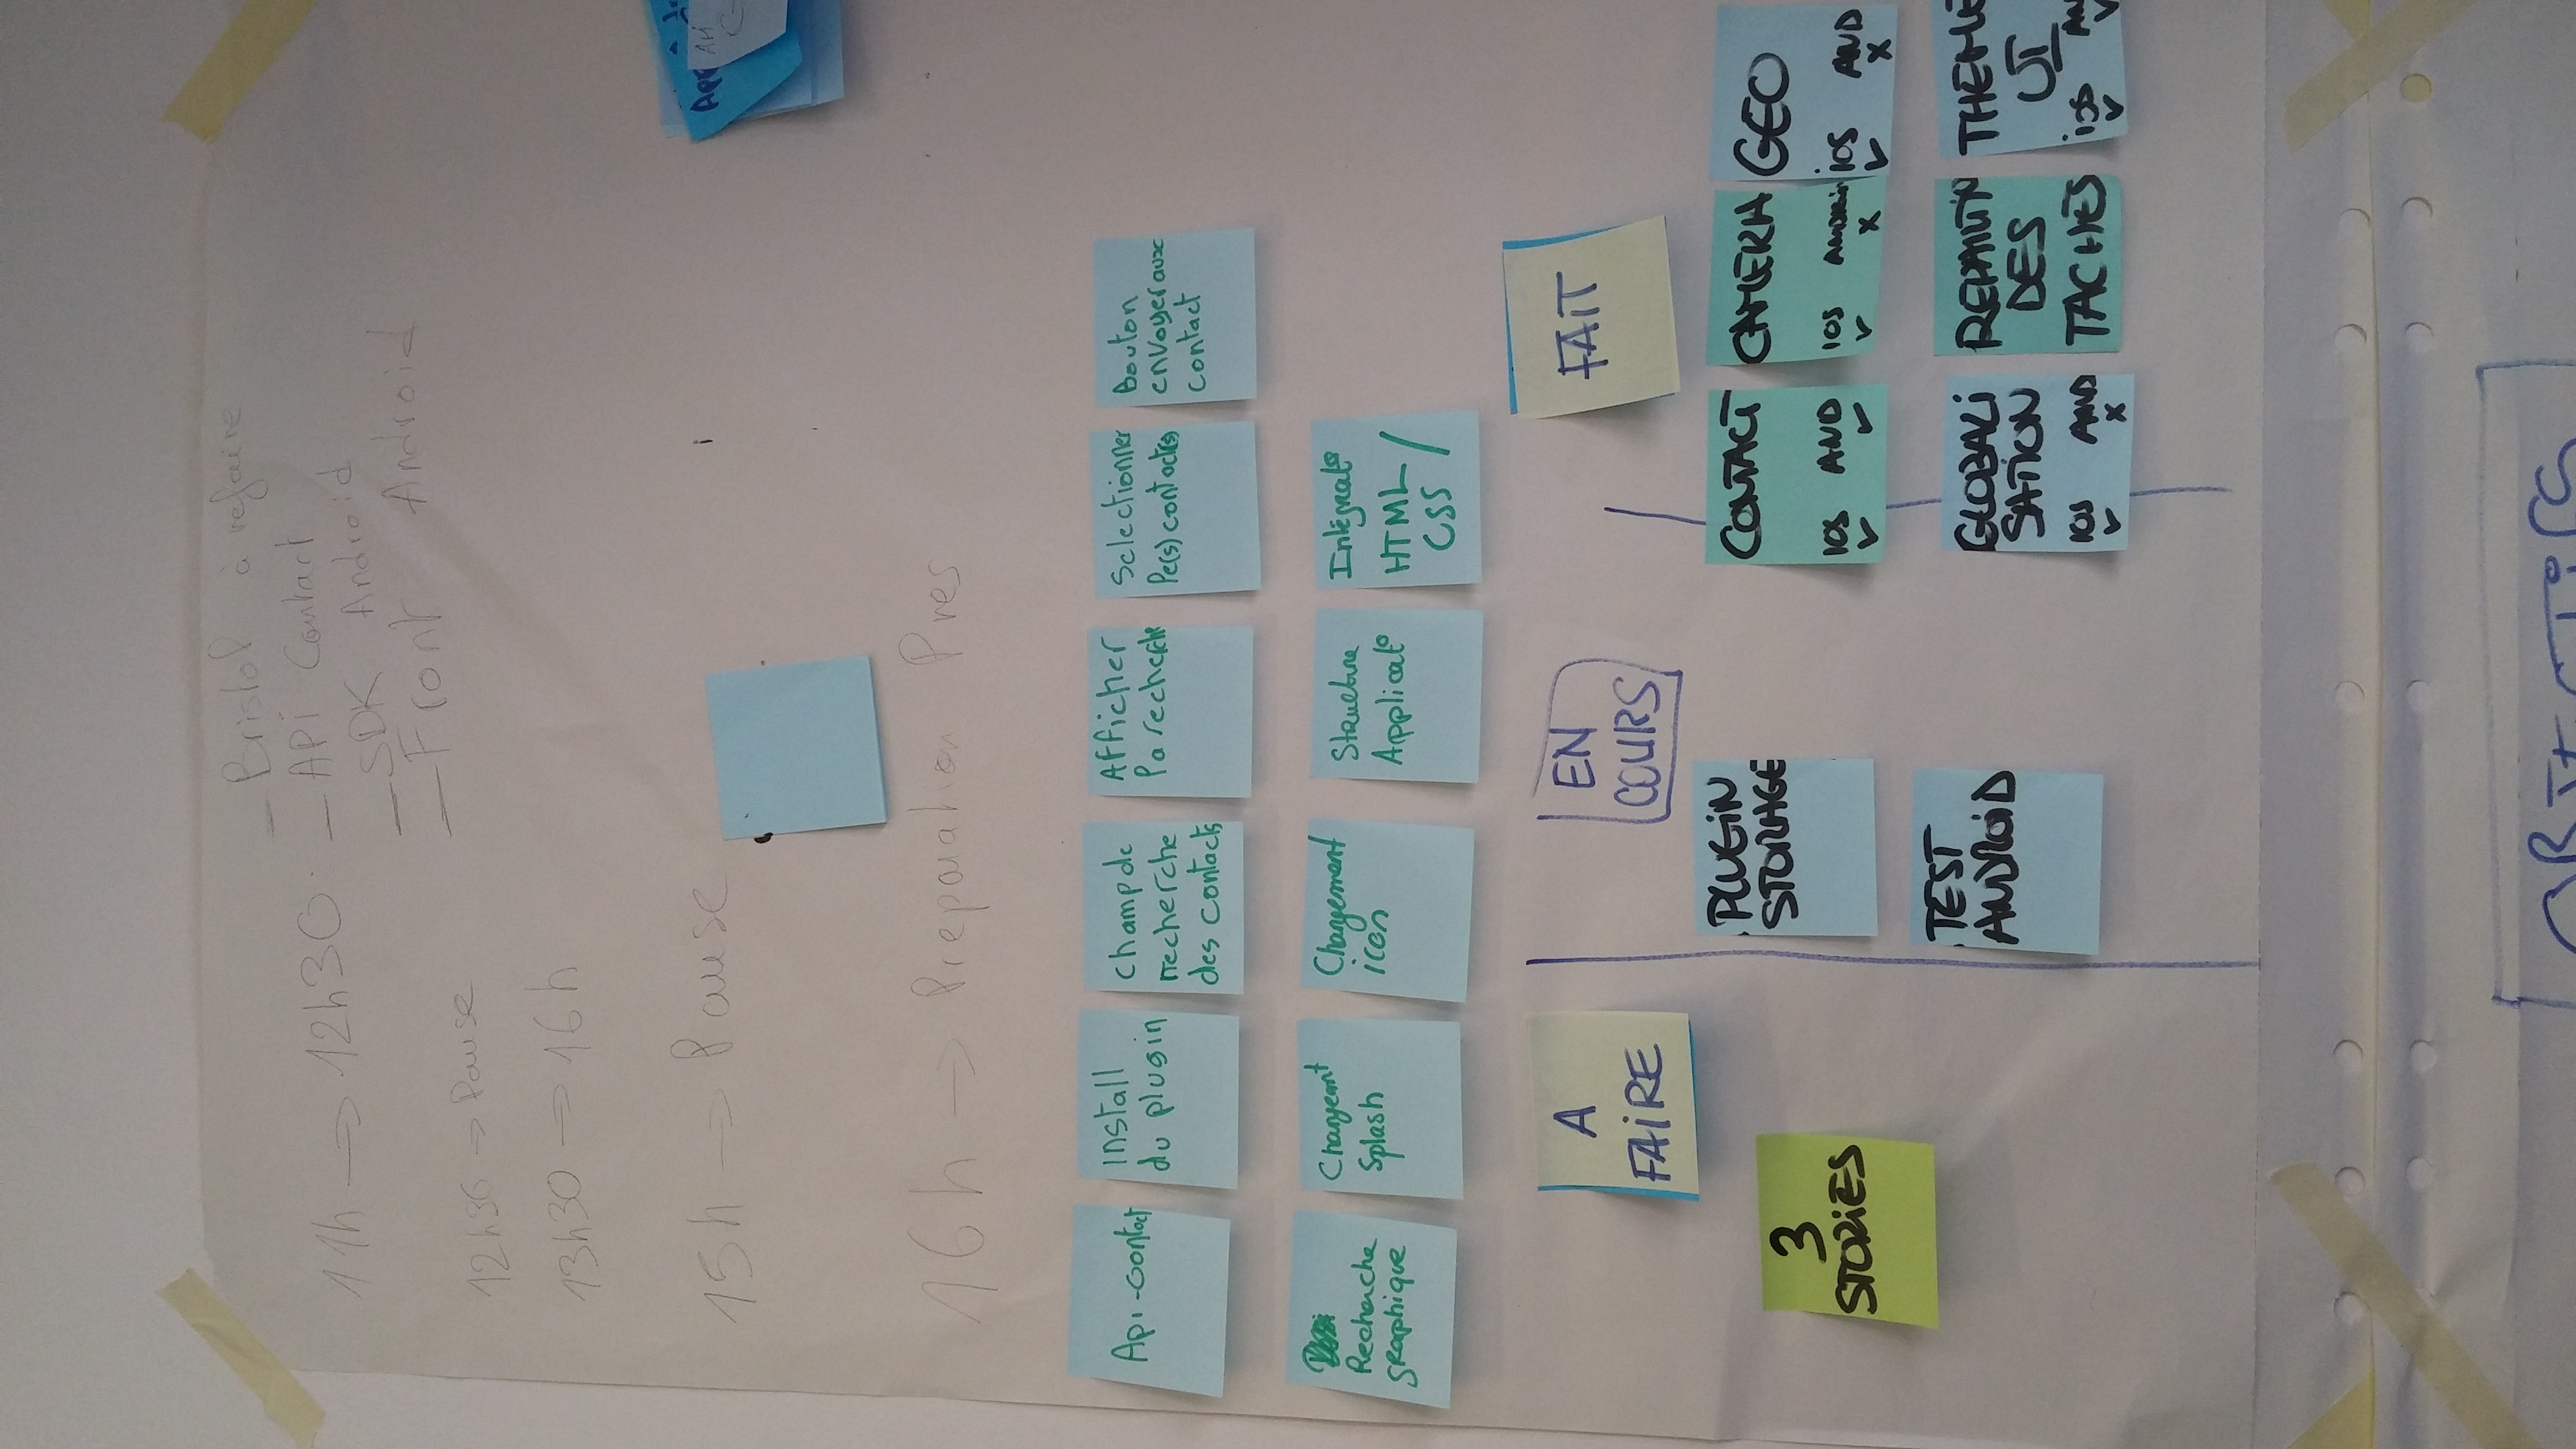 11h → 12h30
– Bristol à refaire
– API Contact
– SDK Android
– Front Android
12h30 → Pause
13h30 → 16h
15h → Pause
16h → Preparation Pres
Api-contact
Install
du plugin
champ de
recherche
des contacts
Afficher
la recherche
Selectionner
le(s) contact(s)
Bouton
envoyer aux
contact
Recherche
graphique
Changemt
Splash
Changement
icon
Structure
Applicat°
Intégrat°
HTML /
CSS
A
FAIRE
EN
COURS
FAIT
3
STORIES
PLUGIN
STORAGE
TEST
ANDROID
CONTACT
IOS AND
✓ ✓
CAMERA
IOS Android
✓ x
GEO
iOS AND
✓ x
GLOBALI
SATION
IOS AND
✓ x
REPARTITN
DES
TACHES
THEME
UI
iOS AN
✓ ✓
OBJECTIFS